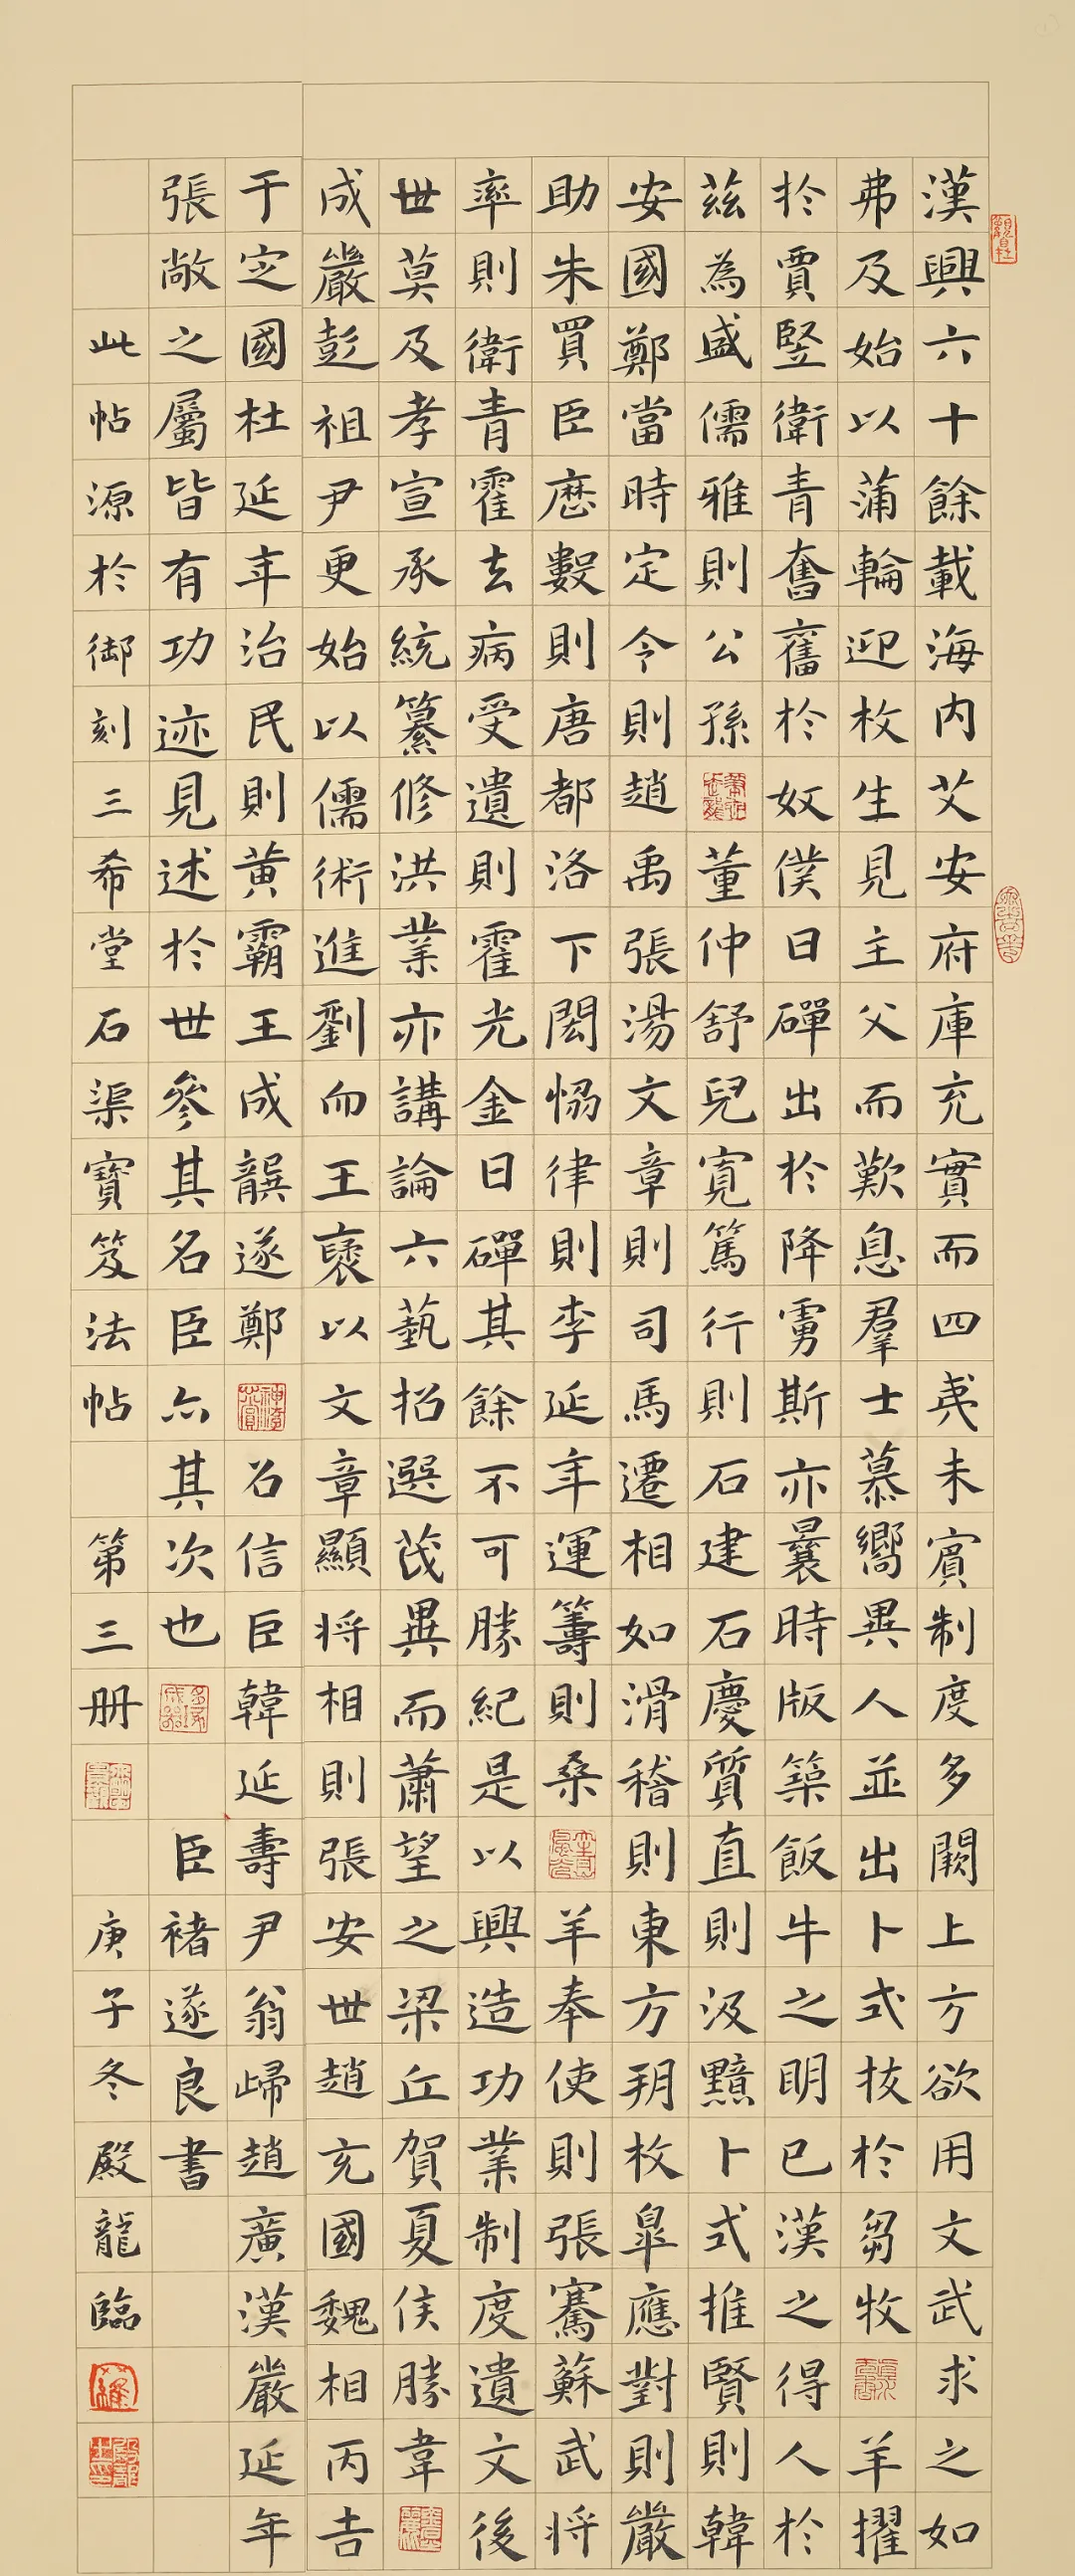 漢興六十餘載海内艾安府庫充實而四夷未賓制度多闕上方欲用文武求之如
弗及始以蒲輪迎枚生見主父而歎息羣士慕嚮異人並出卜式拔於芻牧羊擢
於賈豎衛青奮舊於奴僕日磾出於降虜斯亦曩時版築飯牛之明已漢之得人於
茲為盛儒雅則公孫董仲舒兒寬篤行則石建石慶質直則汲黯卜式推賢則韓
安國鄭當時定令則趙禹張湯文章則司馬遷相如滑稽則東方朔枚皋應對則嚴
助朱買臣歷數則唐都洛下閎恊律則李延年運籌則桑羊奉使則張騫蘇武将
率則衛青霍去病受遺則霍光金日磾其餘不可勝紀是以興造功業制度遺文後
世莫及孝宣承統纂修洪業亦講論六藝招選茂異而蕭望之梁丘賀夏侯勝韋
成嚴彭祖尹更始以儒術進劉而王褒以文章顯将相則張安世趙充國魏相丙吉
于定國杜延年治民則黄霸王成龔遂鄭召信臣韓延壽尹翁歸趙廣漢嚴延年
張敞之屬皆有功迹見述於世參其名臣亦其次也 臣褚遂良書
此帖源於御刻三希堂石渠寶笈法帖 第三册 庚子冬殿龍臨